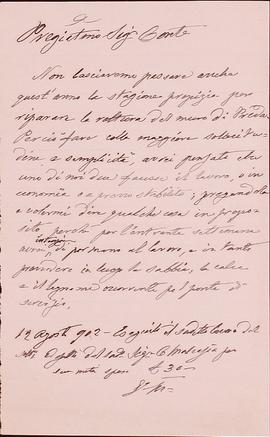 Pregiatmo Sigr Conte
Non lasciaremo passare anche
quest'anno la stagione propizia per
riparare la rottura del muro di
Perciò fare colla maggiore solecitu
dine e semplicità, avrei pensato che
uno di noi due facesse il lavoro, o in
economia o a prezzo stabilito; pregandola
a volermi dire qualche cosa in propo
sito, perchè per l'entrante settimana
avrei por mano al lavoro, e in tanto
provvedere in luogo la sabbia, la calce
e il legname occorrente pel ponte di
servizio.
12 agosto 902 - Eseguito il lavoro
del Sigr per
sua metà spese £ 30 -